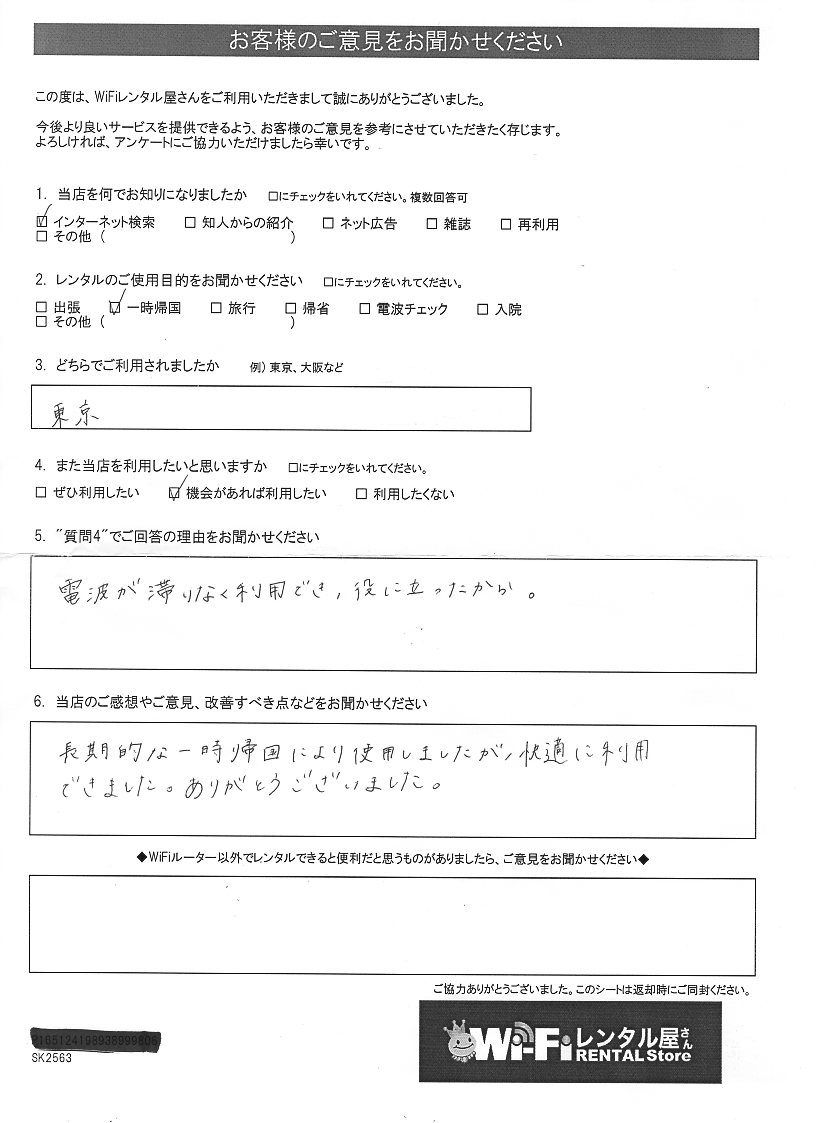 お客様のご意見をお聞かせください
この度は、WiFiレンタル屋さんをご利用いただきまして誠にありがとうございました。
今後より良いサービスを提供できるよう、お客様のご意見を参考にさせていただきたく存じます。
よろしければ、アンケートにご協力いただけましたら幸いです。
1. 当店を何でお知りになりましたか □にチェックをいれてください。複数回答可
☑ インターネット検索 □ 知人からの紹介 □ ネット広告 □ 雑誌 □ 再利用
□ その他 ( )
2. レンタルのご使用目的をお聞かせください □にチェックをいれてください。
□ 出張 ☑ 一時帰国 □ 旅行 □ 帰省 □ 電波チェック □ 入院
□ その他 ( )
3. どちらでご利用されましたか 例) 東京、大阪など
東京
4. また当店を利用したいと思いますか □にチェックをいれてください。
□ ぜひ利用したい ☑ 機会があれば利用したい □ 利用したくない
5. "質問4"でご回答の理由をお聞かせください
電波が滞りなく利用でき、役に立ったから。
6. 当店のご感想やご意見、改善すべき点などをお聞かせください
長期的な一時帰国により使用しましたが、快適に利用
できました。ありがとうございました。
◆WiFiルーター以外でレンタルできると便利だと思うものがありましたら、ご意見をお聞かせください◆
ご協力ありがとうございました。このシートは返却時にご同封ください。
SK2563
Wi-Fiレンタル屋さん
RENTAL Store